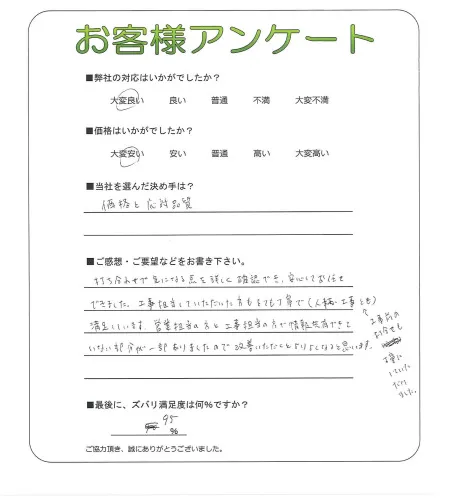 お客様アンケート
■弊社の対応はいかがでしたか?
大変良い 良い 普通 不満 大変不満
■価格はいかがでしたか?
大変安い 安い 普通 高い 大変高い
■当社を選んだ決め手は?
価格と応対品質
■ご感想・ご要望などをお書き下さい。
打ち合わせで気になる点を詳しく確認でき、安心してお任せ
できました。工事担当していただいた方もとても丁寧で(人柄・工事とも)
満足しています。営業担当の方と工事担当の方で情報共有できて
いない部分が一部ありましたので改善いただくとよりよくなると思います。
工事前の
お伝えも
丁寧に
していた
だけ
ました。
■最後に、ズバリ満足度は何%ですか?
95
%
ご協力頂き、誠にありがとうございました。